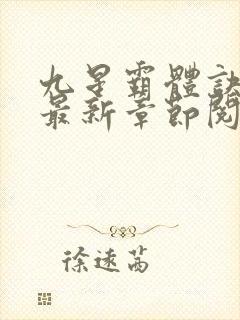 九星霸體訣
最新章節閱
徐速茜